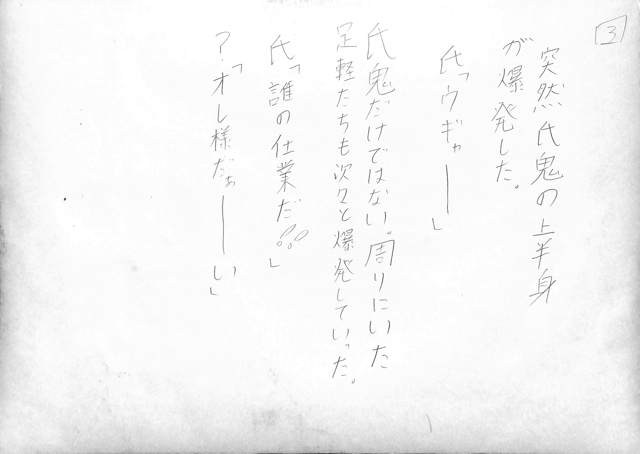 3
突然氏鬼の上半身
が爆発した。
氏「ウギャー」
氏鬼だけではない。周りにいた
足軽たちも次々と爆発していった。
氏「誰の仕業だ!!?」
?「オレ様だぁーい」